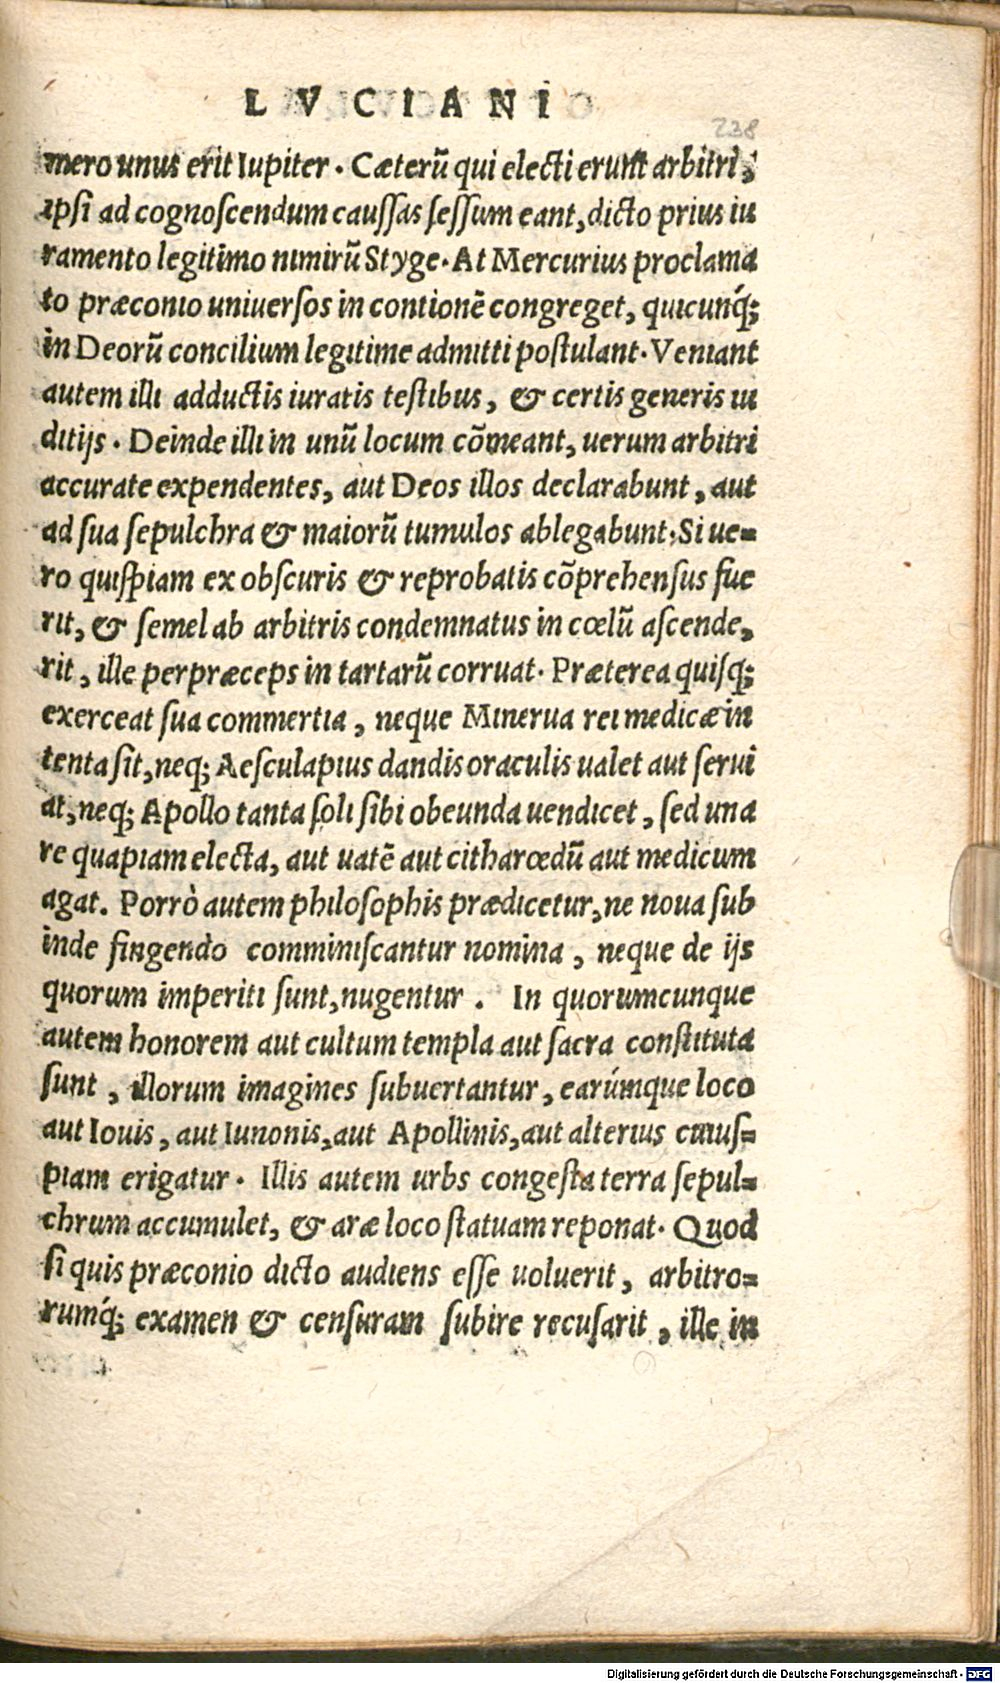 LVCIANI
238
mero unus erit Iupiter. Cæterũ qui electi erunt arbitri,
ipsi ad cognoscendum caussas sessum eant, dicto prius iu
ramento legitimo nimirũ Styge. At Mercurius proclama
to præconio uniuersos in contionẽ congreget, quicunq́;
in Deorũ concilium legitime admitti postulant. Veniant
autem illi adductis iuratis testibus, & certis generis in
ditijs. Deinde illi in unũ locum cõmeant, uerum arbitri
accurate expendentes, aut Deos illos declarabunt, aut
ad sua sepulchra & maiorũ tumulos ablegabunt: Si ue=
ro quispiam ex obscuris & reprobatis cõprehensus fue
rit, & semel ab arbitris condemnatus in cœlũ ascende,
rit, ille perpræceps in tartarũ corruat. Præterea quisq;
exerceat sua commertia, neque Minerua rei medicæ in
tenta sit, neq; Aesculapius dandis oraculis ualet aut serui
at, neq; Apollo tanta soli sibi obeunda uendicet, sed una
re quapiam electa, aut uatẽ aut citharœdũ aut medicum
agat. Porrò autem philosophis prædicetur, ne noua sub
inde fingendo comminiscantur nomina, neque de ijs
quorum imperiti sunt, nugentur. In quorumcunque
autem honorem aut cultum templa aut sacra constituta
sunt, illorum imagines subuertantur, earúmque loco
aut Iouis, aut Iunonis, aut Apollinis, aut alterius cuius=
piam erigatur. Illis autem urbs congesta terra sepul=
chrum accumulet, & aræ loco statuam reponat. Quod
si quis præconio dicto audiens esse uoluerit, arbitro=
rumq́; examen & censuram subire recusarit, ille in
Digitalisierung gefördert durch die Deutsche Forschungsgemeinschaft - DFG